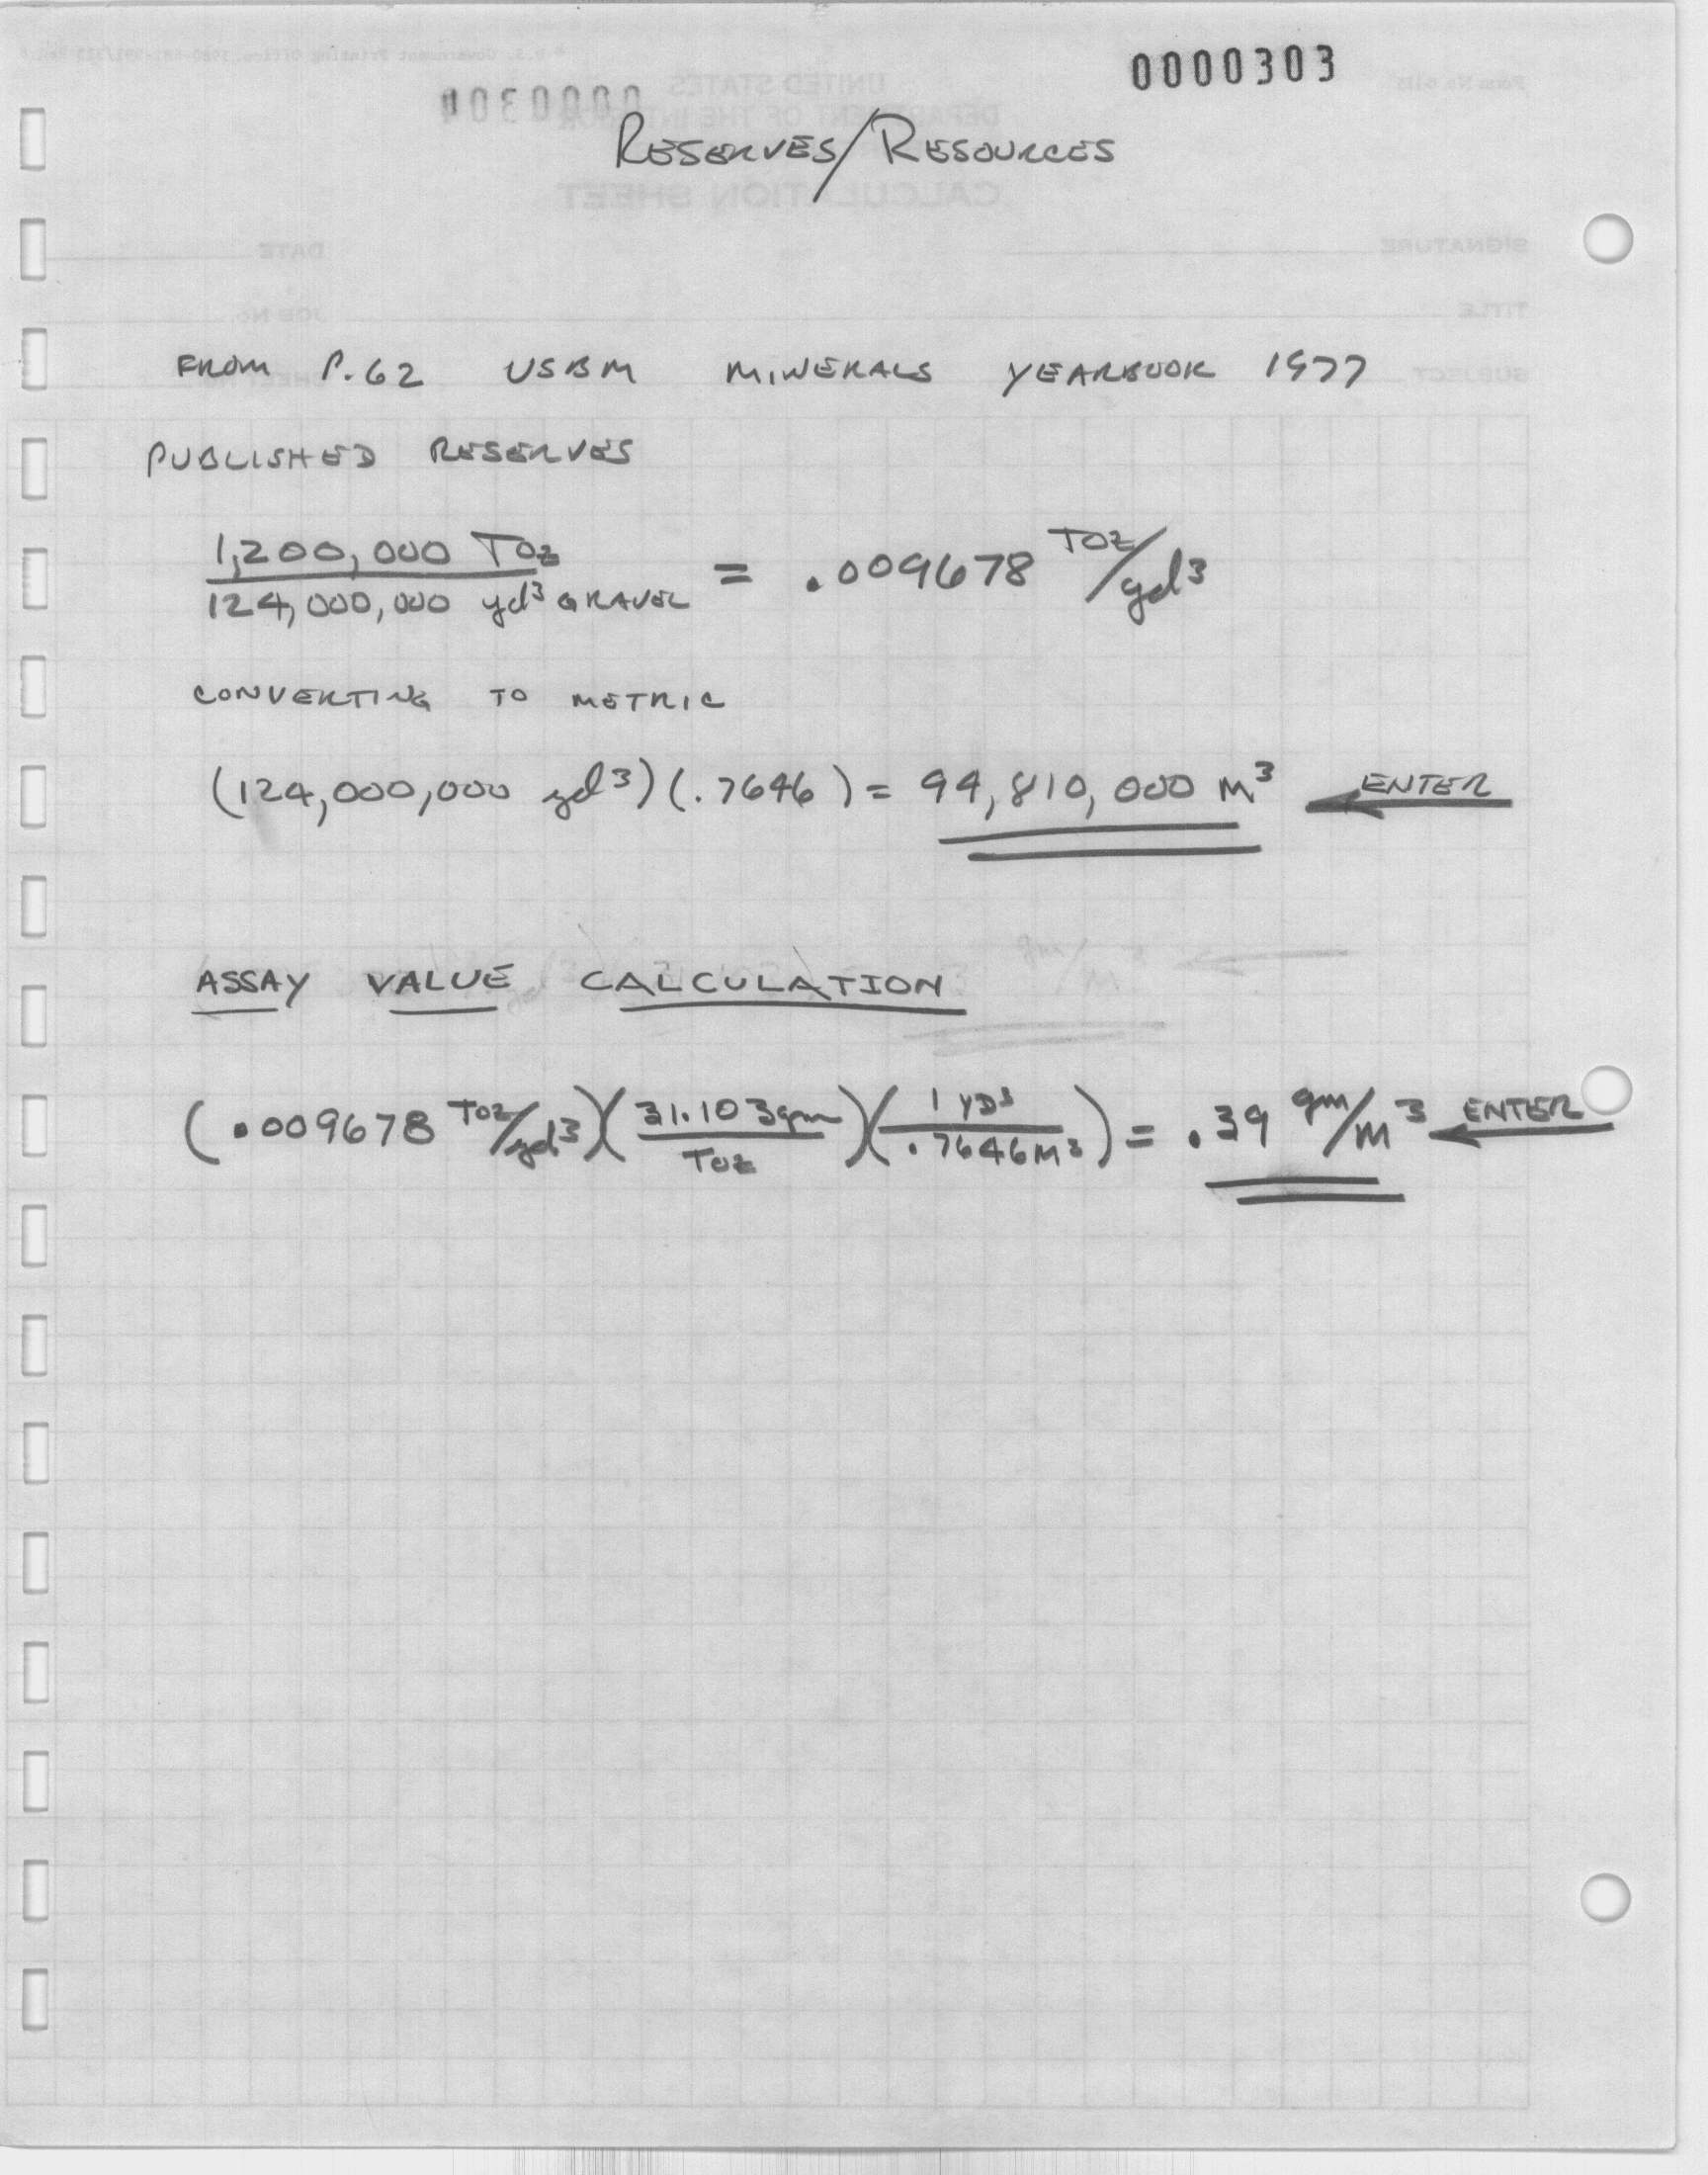 0000303
RESERVES/RESOURCES
FROM P.62 USBM MINERALS YEARBOOK 1977
PUBLISHED RESERVES
1,200,000 TOz
124,000,000 yd³ GRAVEL = .009678 TOZ/yd³
CONVERTING TO METRIC
(124,000,000 yd³)(.7646) = 94,810,000 M³ ← ENTER
ASSAY VALUE CALCULATION
(.009678 TOZ/yd³)(31.103gm/TOZ)(1 YD³/.7646M³) = .39 gm/M³ ← ENTER